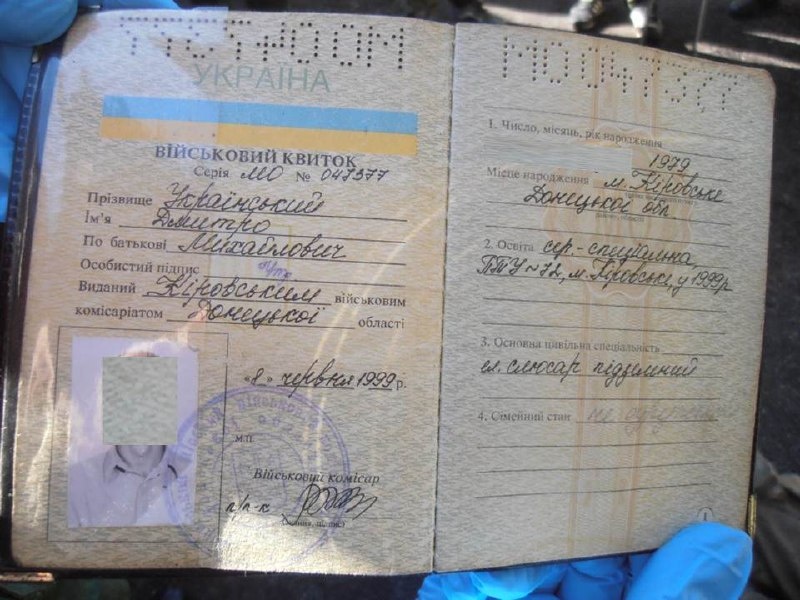 УКРАЇНА
ВІЙСЬКОВИЙ КВИТОК
Серія МО № 047377
Прізвище Український
Ім'я Дмитро
По батькові Михайлович
Особистий підпис
Виданий Кіровським військовим
комісаріатом Донецької області
«8» червня 1999 р.
М.П.
Військовий комісар
п/п-к
МО 047377
1. Число, місяць, рік народження
1979
Місце народження м. Кіровське
Донецької обл
2. Освіта сер-спеціальна,
ПТУ-72, м. Кіровське, у 1999р
3. Основна цивільна спеціальність
ел. слюсар підземний
4. Сімейний стан не одружений
1